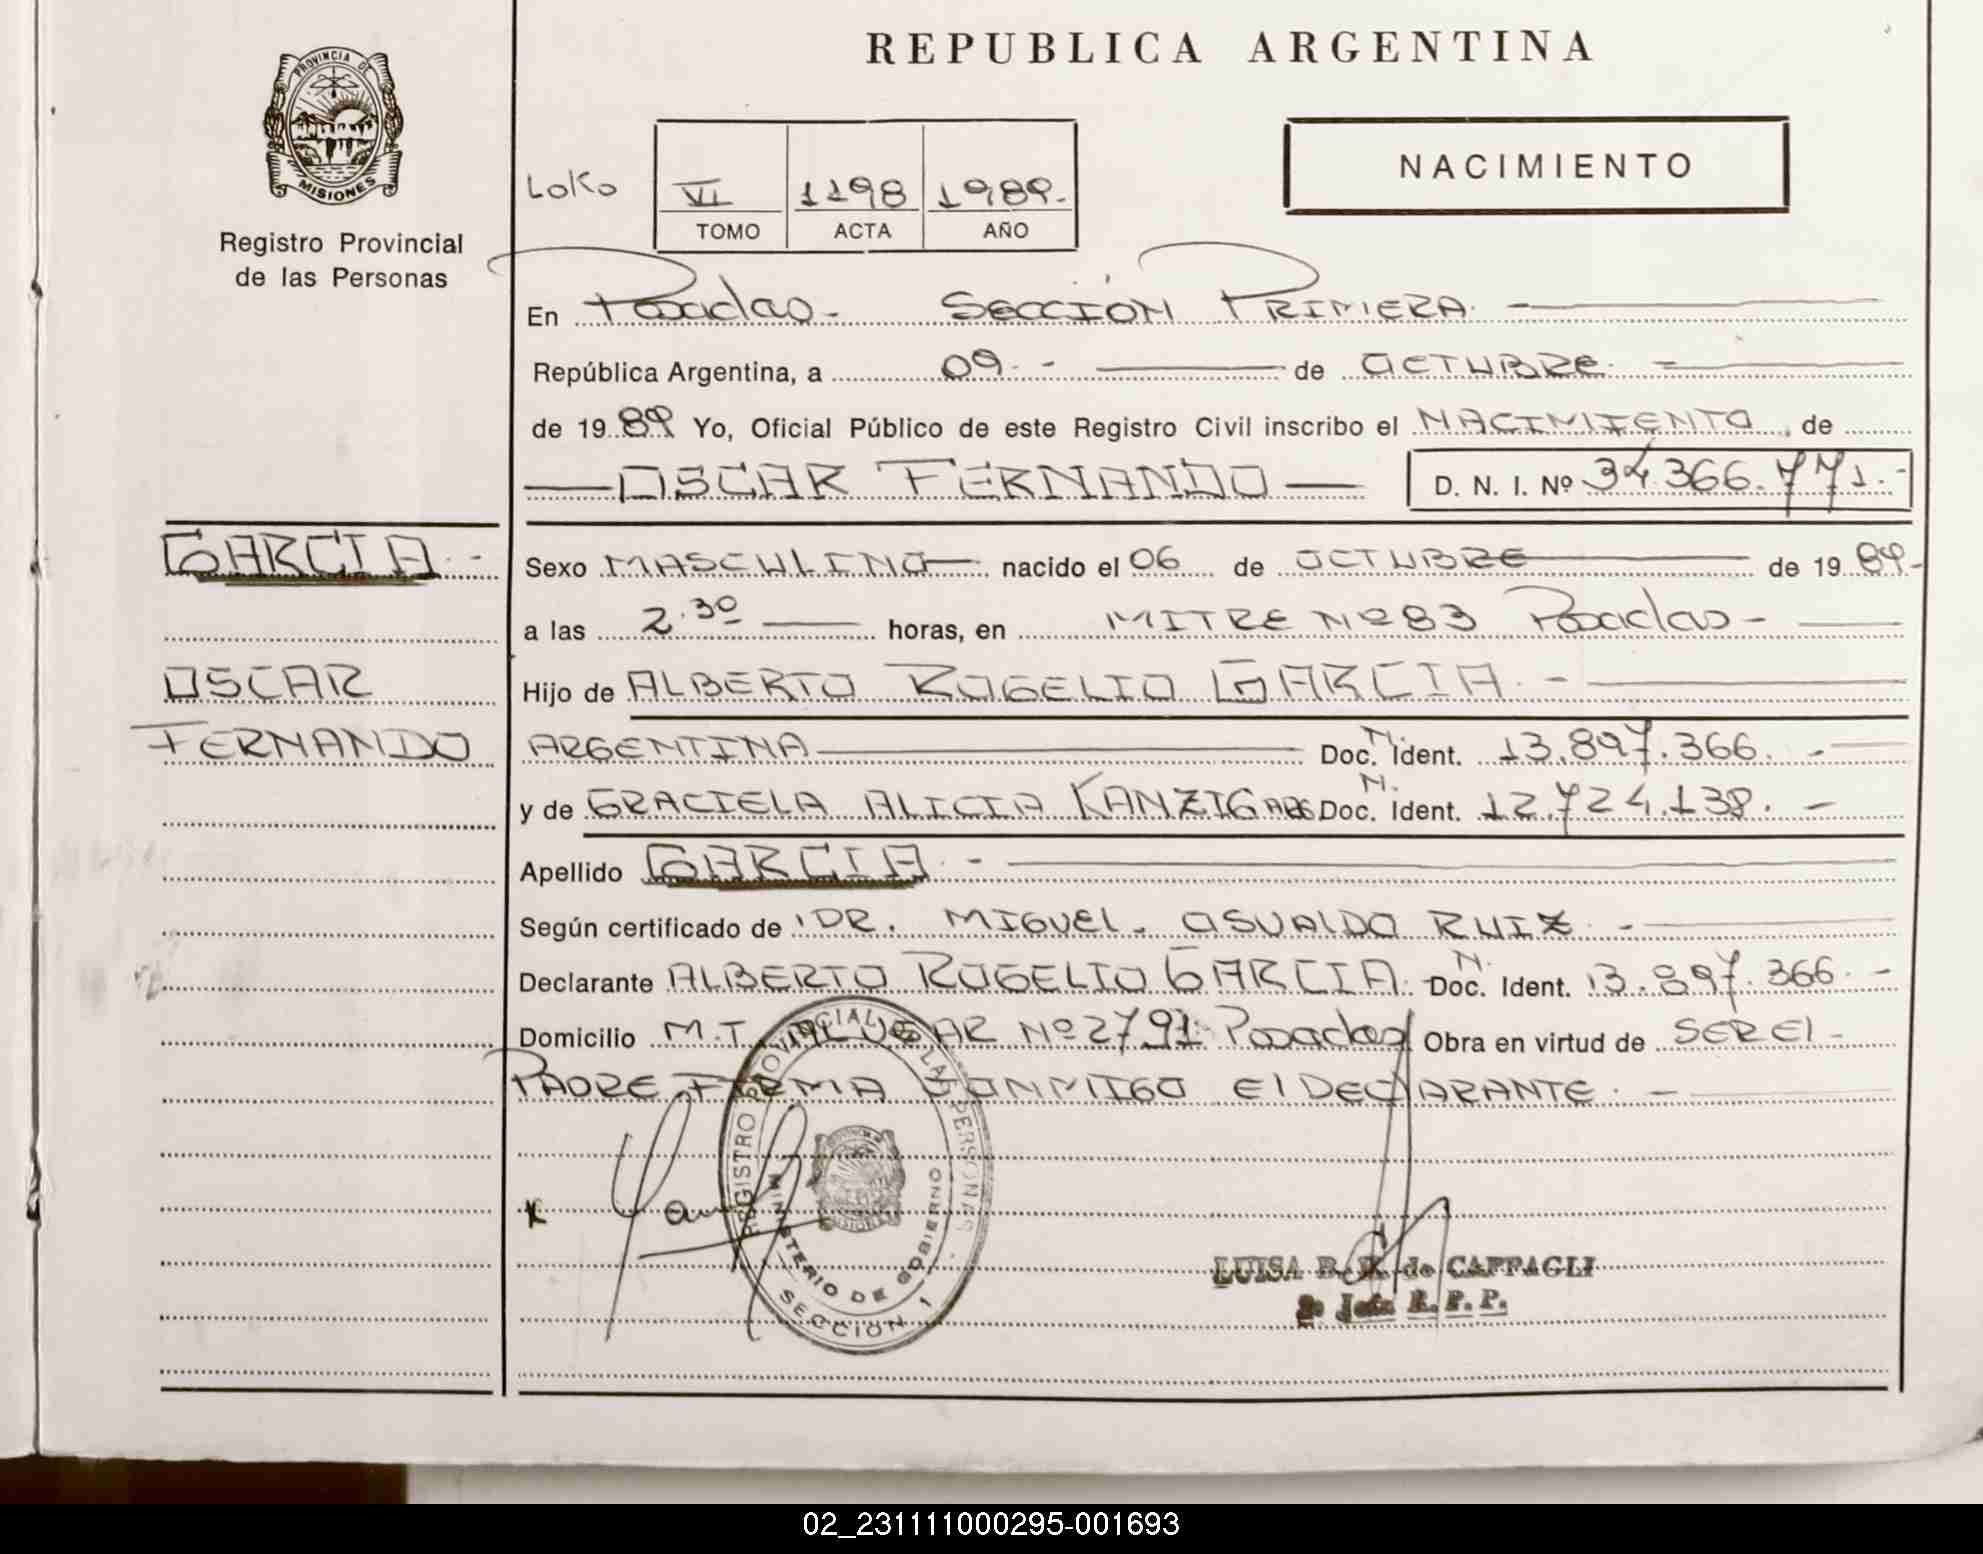 REPUBLICA ARGENTINA
PROVINCIA DE
MISIONES
Registro Provincial
de las Personas
NACIMIENTO
Loko
VI 1198 1989.-
TOMO ACTA AÑO
En Posadas- SECCIÓN PRIMERA. -
República Argentina, a 09.- de OCTUBRE. -
de 1989 Yo, Oficial Público de este Registro Civil inscribo el NACIMIENTO, de
— OSCAR FERNANDO — D. N. I. Nº 34.366.771.-
GARCIA.-
Sexo MASCULINO nacido el 06 de OCTUBRE de 1989.-
a las 2.30 horas, en MITRE Nº 83 Posadas-
OSCAR
Hijo de ALBERTO ROGELIO GARCIA. -
FERNANDO
ARGENTINA Doc. N. Ident. 13.897.366. -
y de GRACIELA ALICIA KANZIG ARG Doc. N. Ident. 12.724.138. -
Apellido GARCIA. -
Según certificado de DR. MIGUEL. OSVALDO RUIZ. -
Declarante ALBERTO ROGELIO GARCIA. Doc. N. Ident. 13.897.366. -
Domicilio M.T. ALVEAR Nº 2791 Posadas Obra en virtud de SER El-
PADRE FIRMA CONMIGO El DECLARANTE. -
REGISTRO PROVINCIAL DE LAS PERSONAS -
MINISTERIO DE GOBIERNO
MISIONES
SECCION 1
x
LUISA B. de CAPPAGLI
2º Jefe R. P. P.
02_231111000295-001693